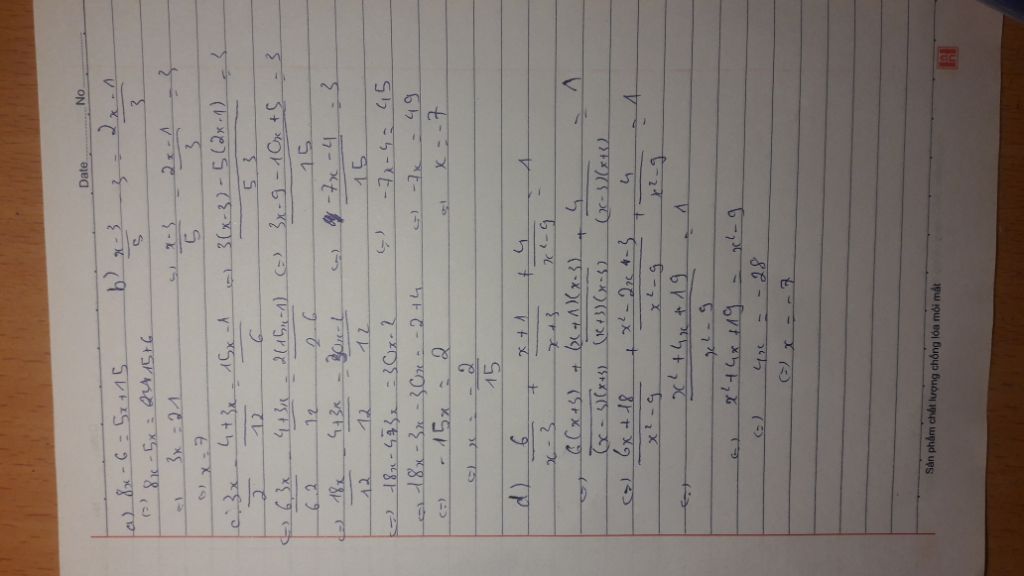 Date No
a) 8x - 6 = 5x + 15
(=) 8x - 5x = 15+6
(=) 3x = 21
(=) x = 7
b) x-3/5 - 3 = 2x-1/3
(=) x-3/5 - 2x-1/3 = 3
(=) 3(x-3) - 5(2x-1)/5.3 = 3
(=) 3x-9-10x+5/15 = 3
(=) -7x-4/15 = 3
(=) -7x-4 = 45
(=) -7x = 49
(=) x = -7
c) 3x/2 - 4+3x/12 = 15x-1/6
(=) 6.3x/6.2 - 4+3x/12 = 2(15x-1)/2.6
(=) 18x/12 - 4+3x/12 = 30x-2/12
(=) 18x-4-3x = 30x-2
(=) 18x-3x-30x = -2+4
(=) -15x = 2
(=) x = -2/15
d) 6/x-3 + x+1/x+3 + 4/x²-9 = 1
(=) 6(x+3)/(x-3)(x+3) + (x+1)(x-3)/(x+3)(x-3) + 4/(x-3)(x+3) = 1
(=) 6x+18/x²-9 + x²-2x-3/x²-9 + 4/x²-9 = 1
(=) x²+4x+19/x²-9 = 1
(=) x²+4x+19 = x²-9
(=) 4x = -28
(=) x = -7
Sản phẩm chất lượng chống lóa mỏi mắt